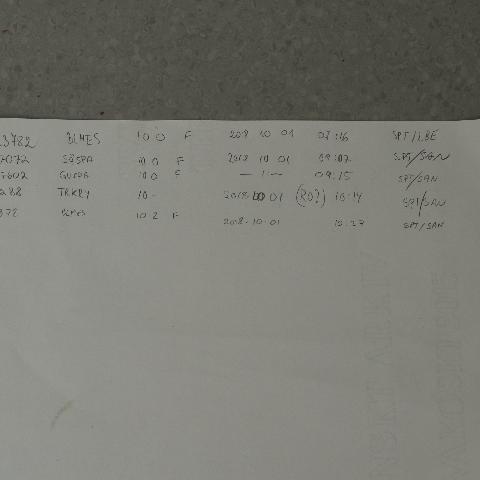 23782 BLMES 10 0 F 2018 10 01 07:16 SPT/LBE
7072 SŠSPA 10 0 F 2018 10 01 09:07 SPT/SAN
7602 10 0 F — 1 — 09:15 SPT/SAN
288 TRKRY 10 - 2018 10 01 (RO?) 10:14 SPT/SAN
372 BLMES 10 2 F 2018-10-01 10:27 SPT/SAN